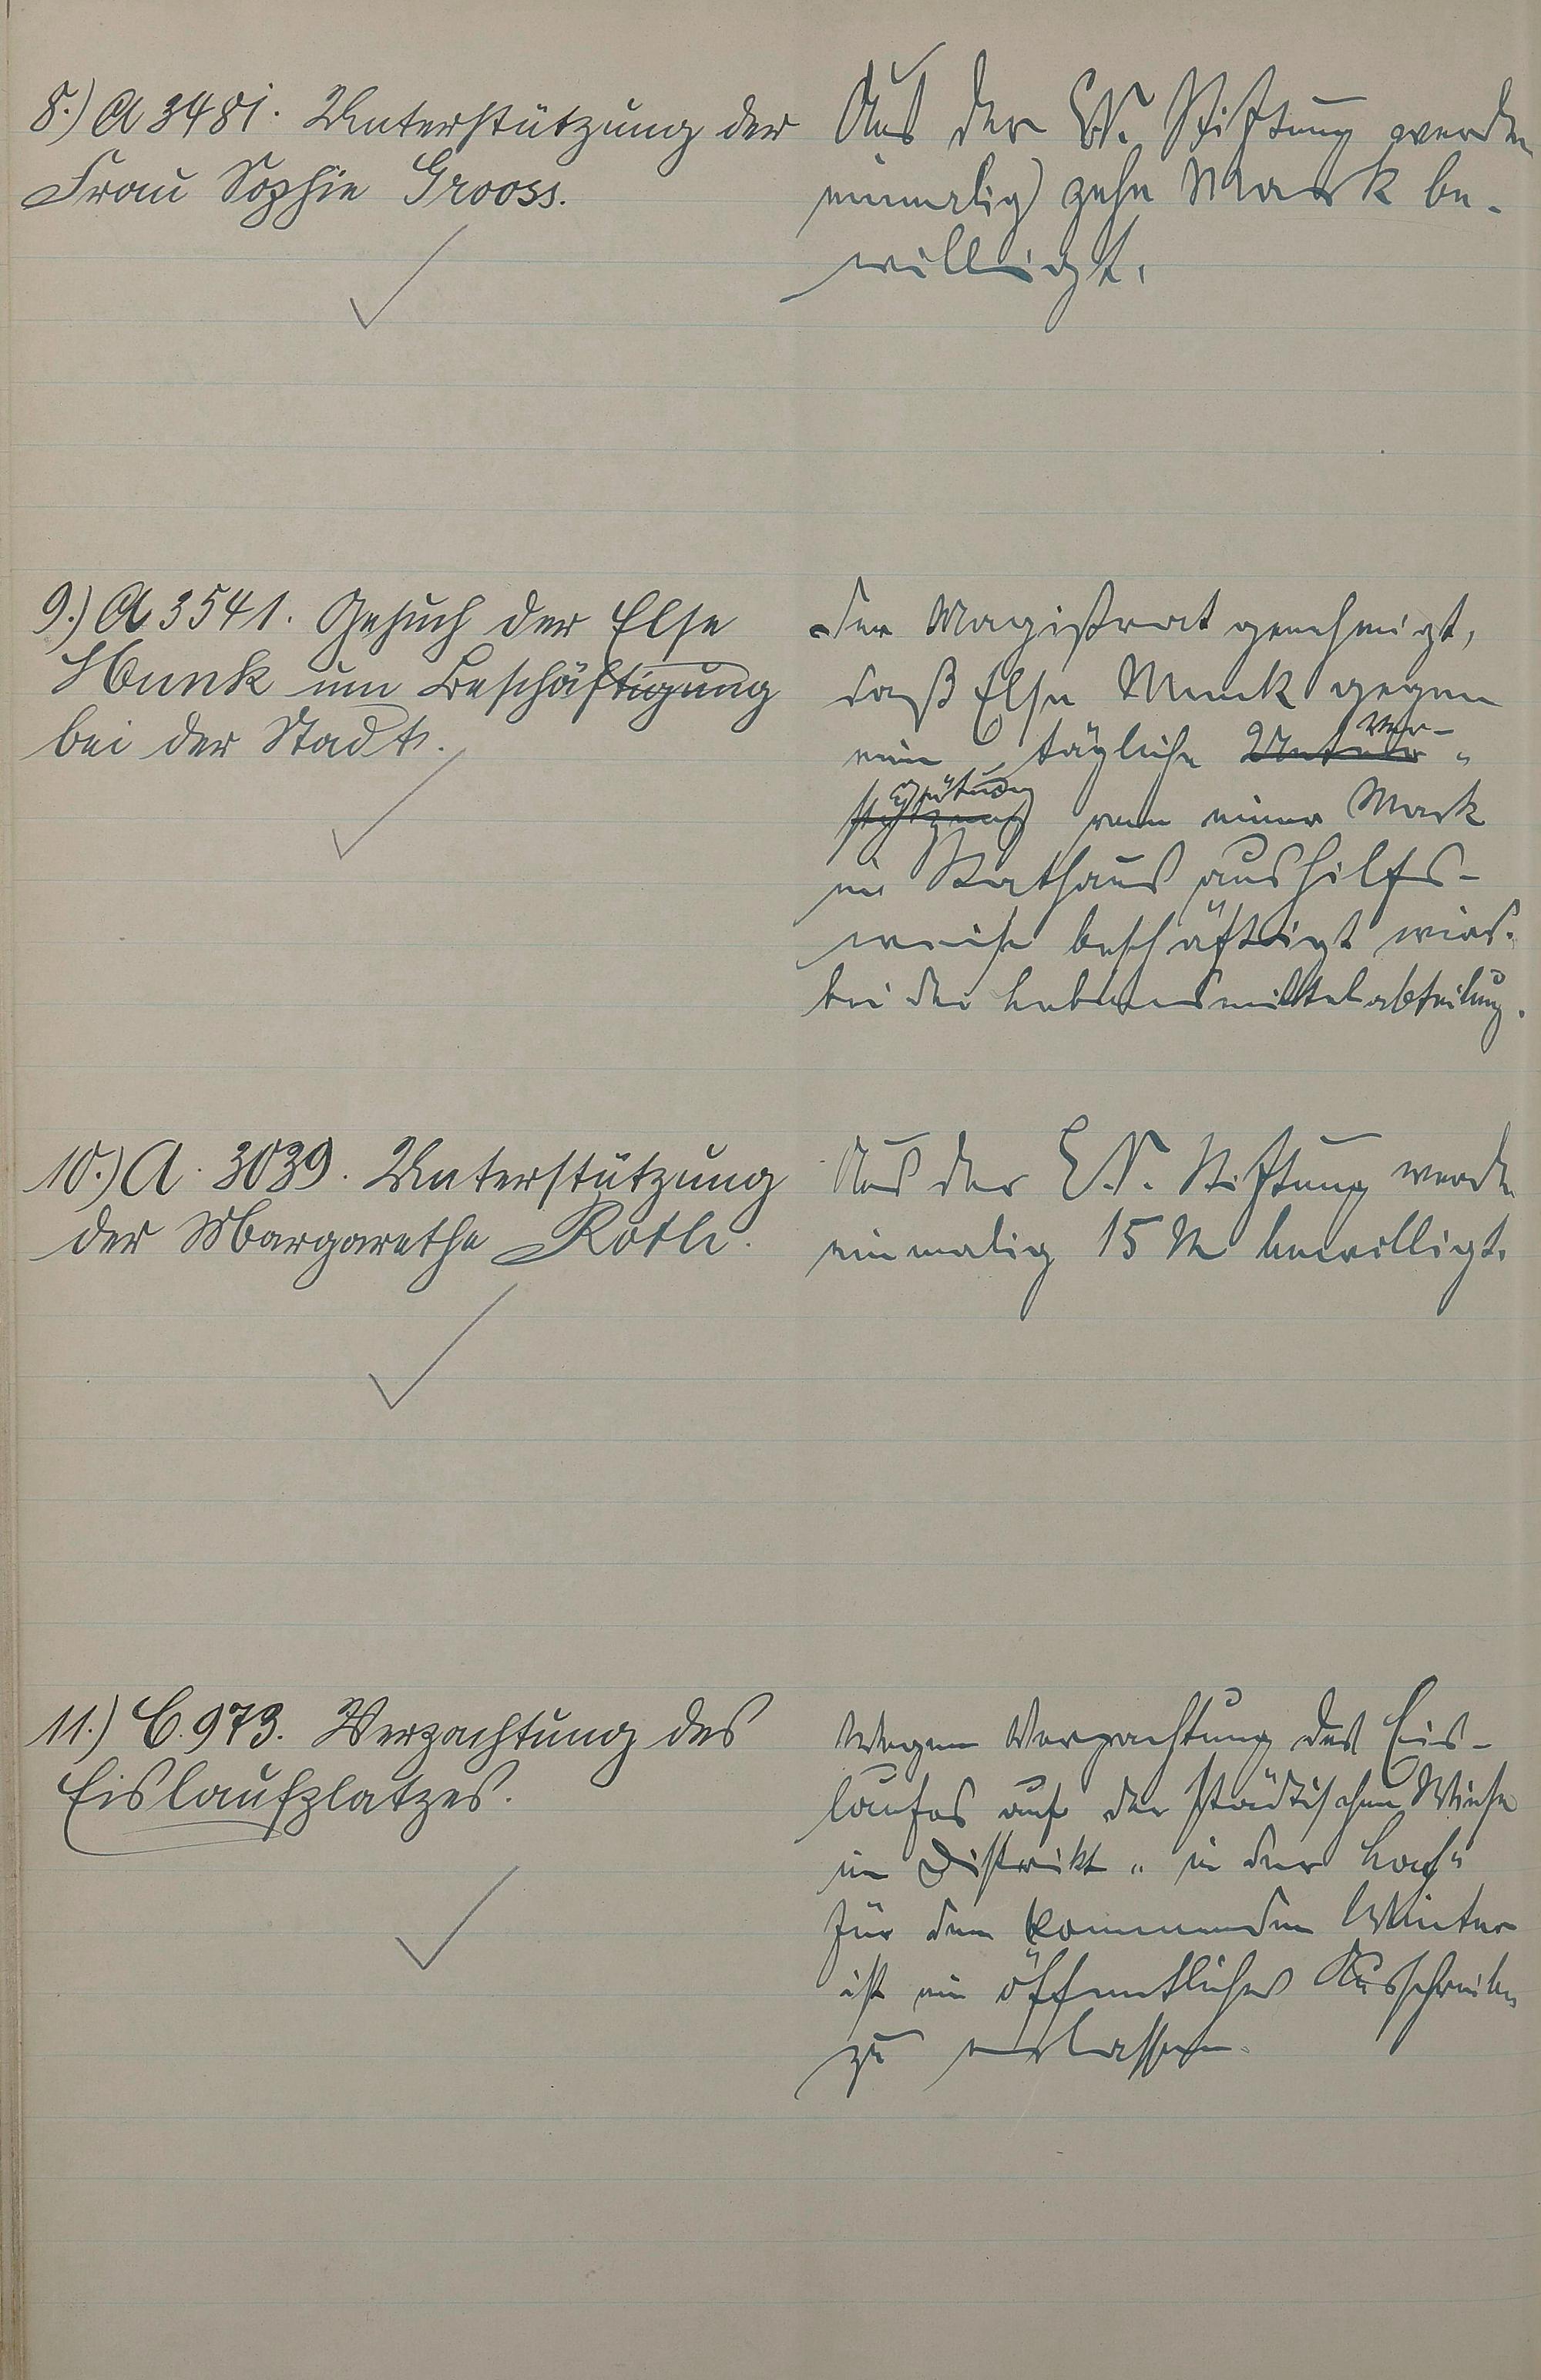 8.) A 3481. Unterstützung der
Frau Sophie Grooss.
Aus der E.V. Stiftung werden
einmalig zehn Mark be-
willigt.
9.) A 3541. Gesuch der Else
Munk um Beschäftigung
bei der Stadt.
Der Magistrat genehmigt,
daß Else Munk gegen
eine tägliche Unter- Ver-
stützung gütung von einer Mark
im Rathaus aushilfs-
weise beschäftigt wird.
bei der Lebensmittelabteilung.
10.) A. 3039. Unterstützung
der Margarethe Roth.
Aus der E.V. Stiftung werden
einmalig 15 M bewilligt.
11.) C. 973. Verpachtung des
Eislaufplatzes.
Wegen Verpachtung des Eis-
laufes auf der städtischen Wiese
im Distrikt "in der Lach"
für den kommenden Winter
ist ein öffentliches Ausschreiben
zu erlassen.